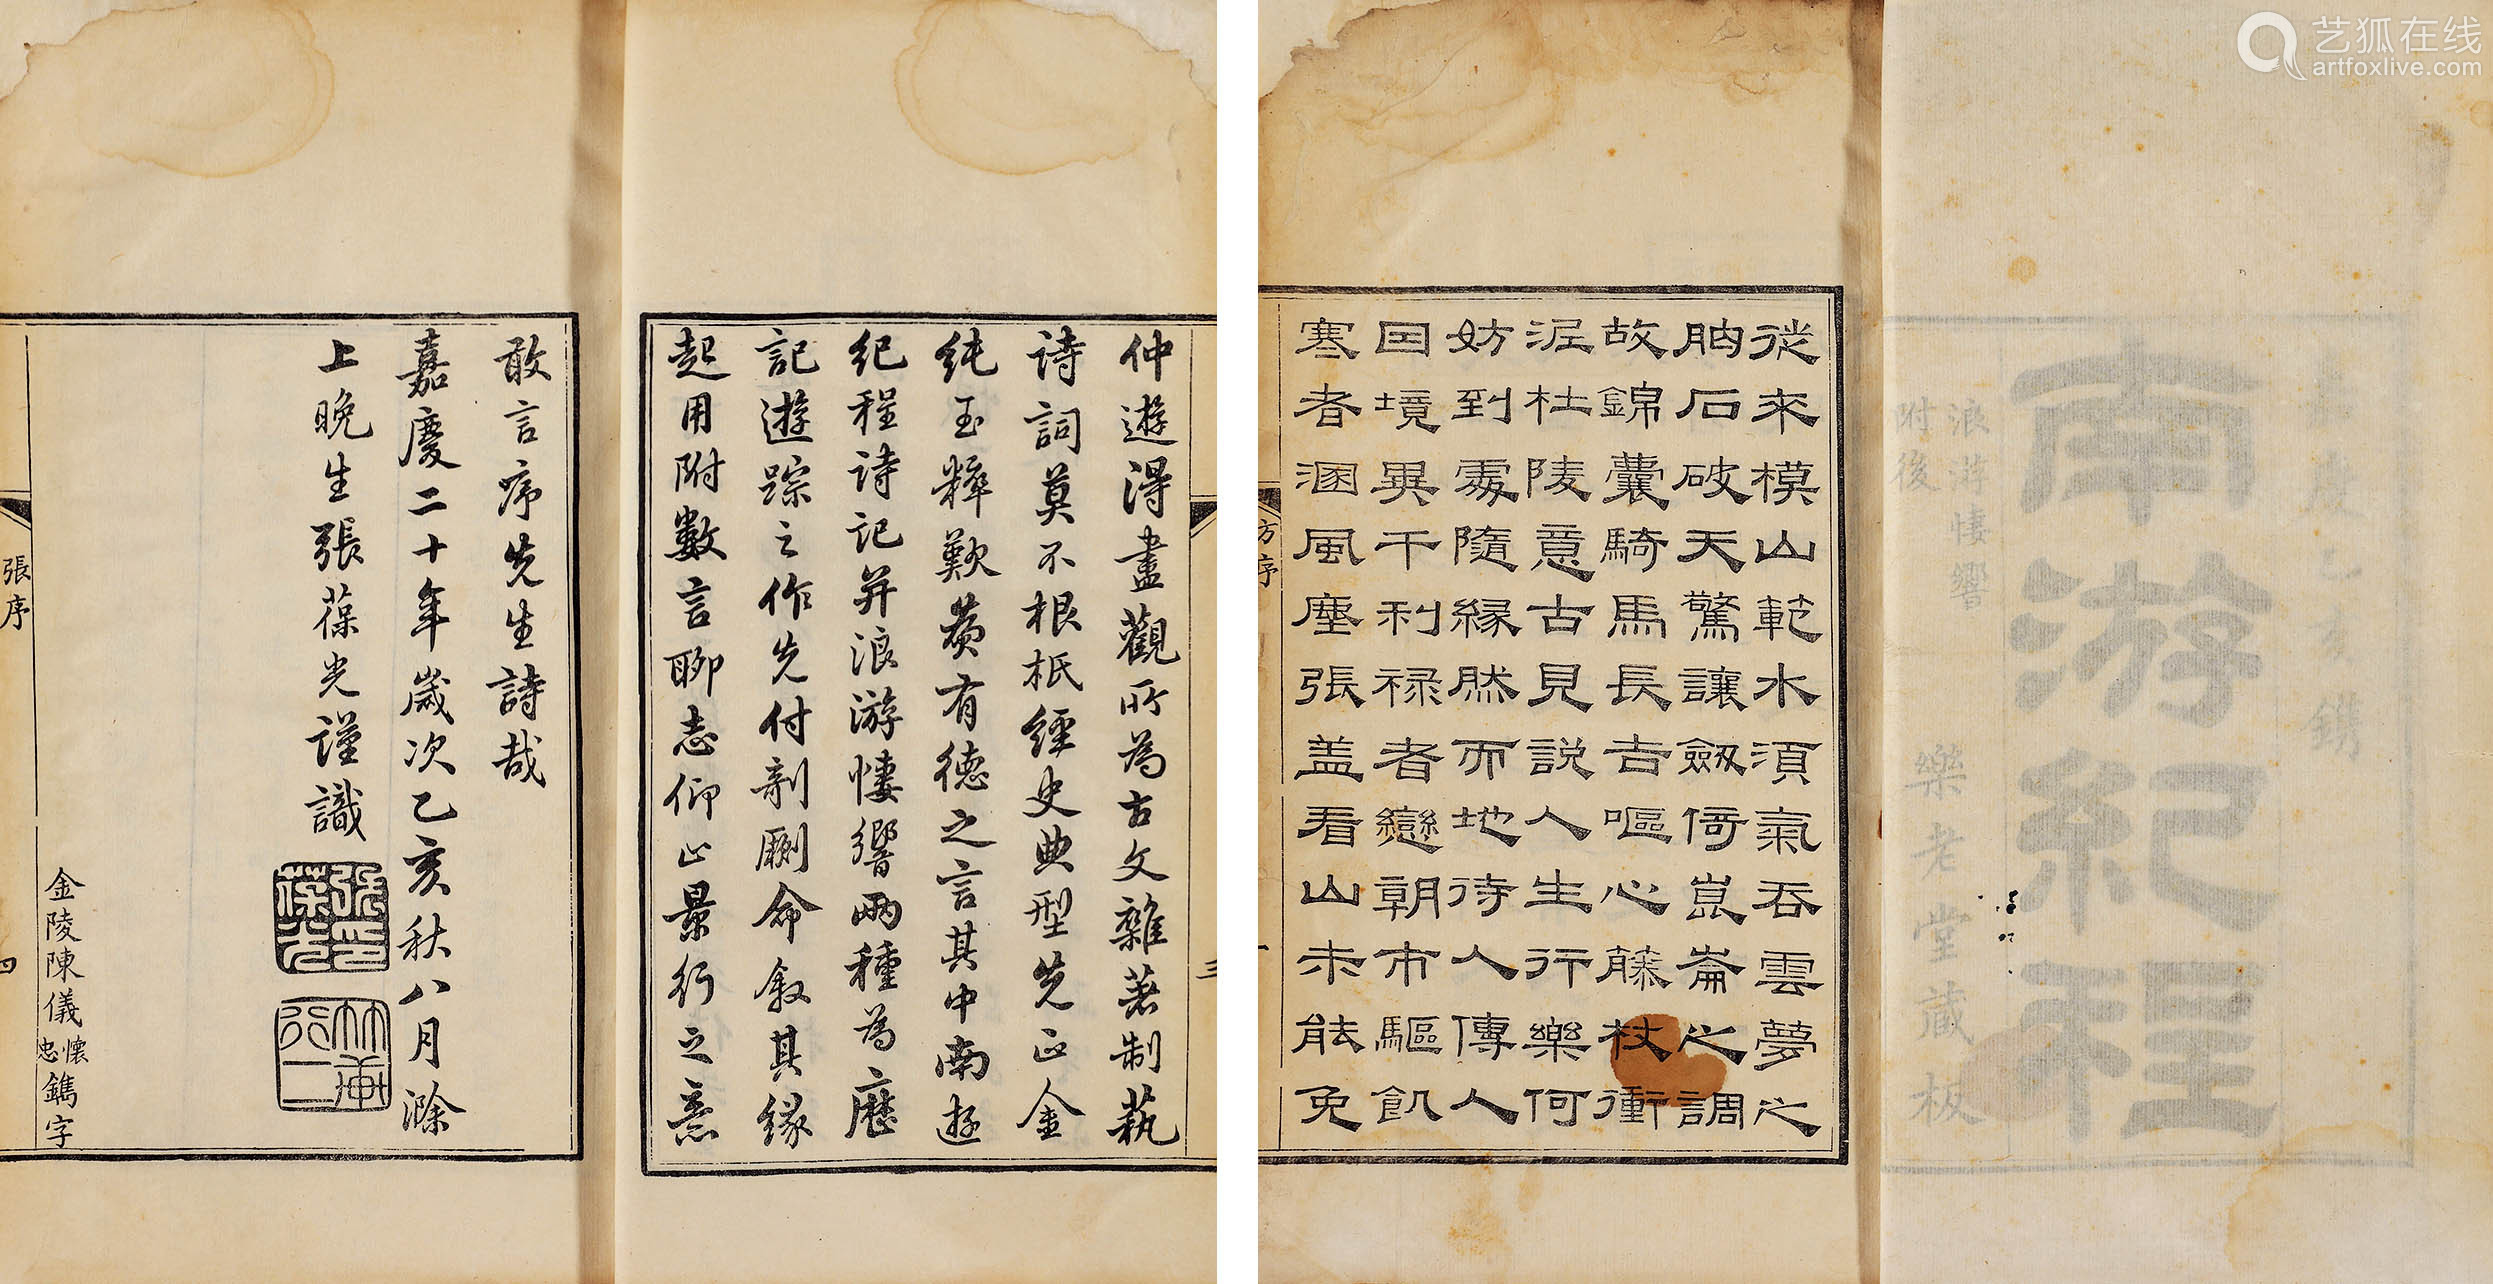 艺狐在线
artfoxlive.com
南游紀程
浪游悽響
附後
樂老堂藏板
從來模山範水須氣吞雲夢之
胷石破天驚讓劔倚崑崙之調
故錦囊騎馬長吉嘔心藤杖衝
泥杜陵意古見說人生行樂何
妨到處隨緣然而地待人傳人
因境異干利祿者戀朝市驅飢
寒者溷風塵張盖看山未能免
方序
一
仲遊得盡觀所為古文雜著制蓺
詩詞莫不根柢經史典型先正金
純玉粹歎爲有德之言其中南遊
紀程詩記并浪游悽響兩種為歷
記遊踪之作先付剞劂命敘其緣
起用附數言聊志仰止景行之意
三
敢言序先生詩哉
嘉慶二十年歲次乙亥秋八月滁
上晚生張葆光謹識
張印葆光
張序
四
金陵陳儀懷忠鐫字